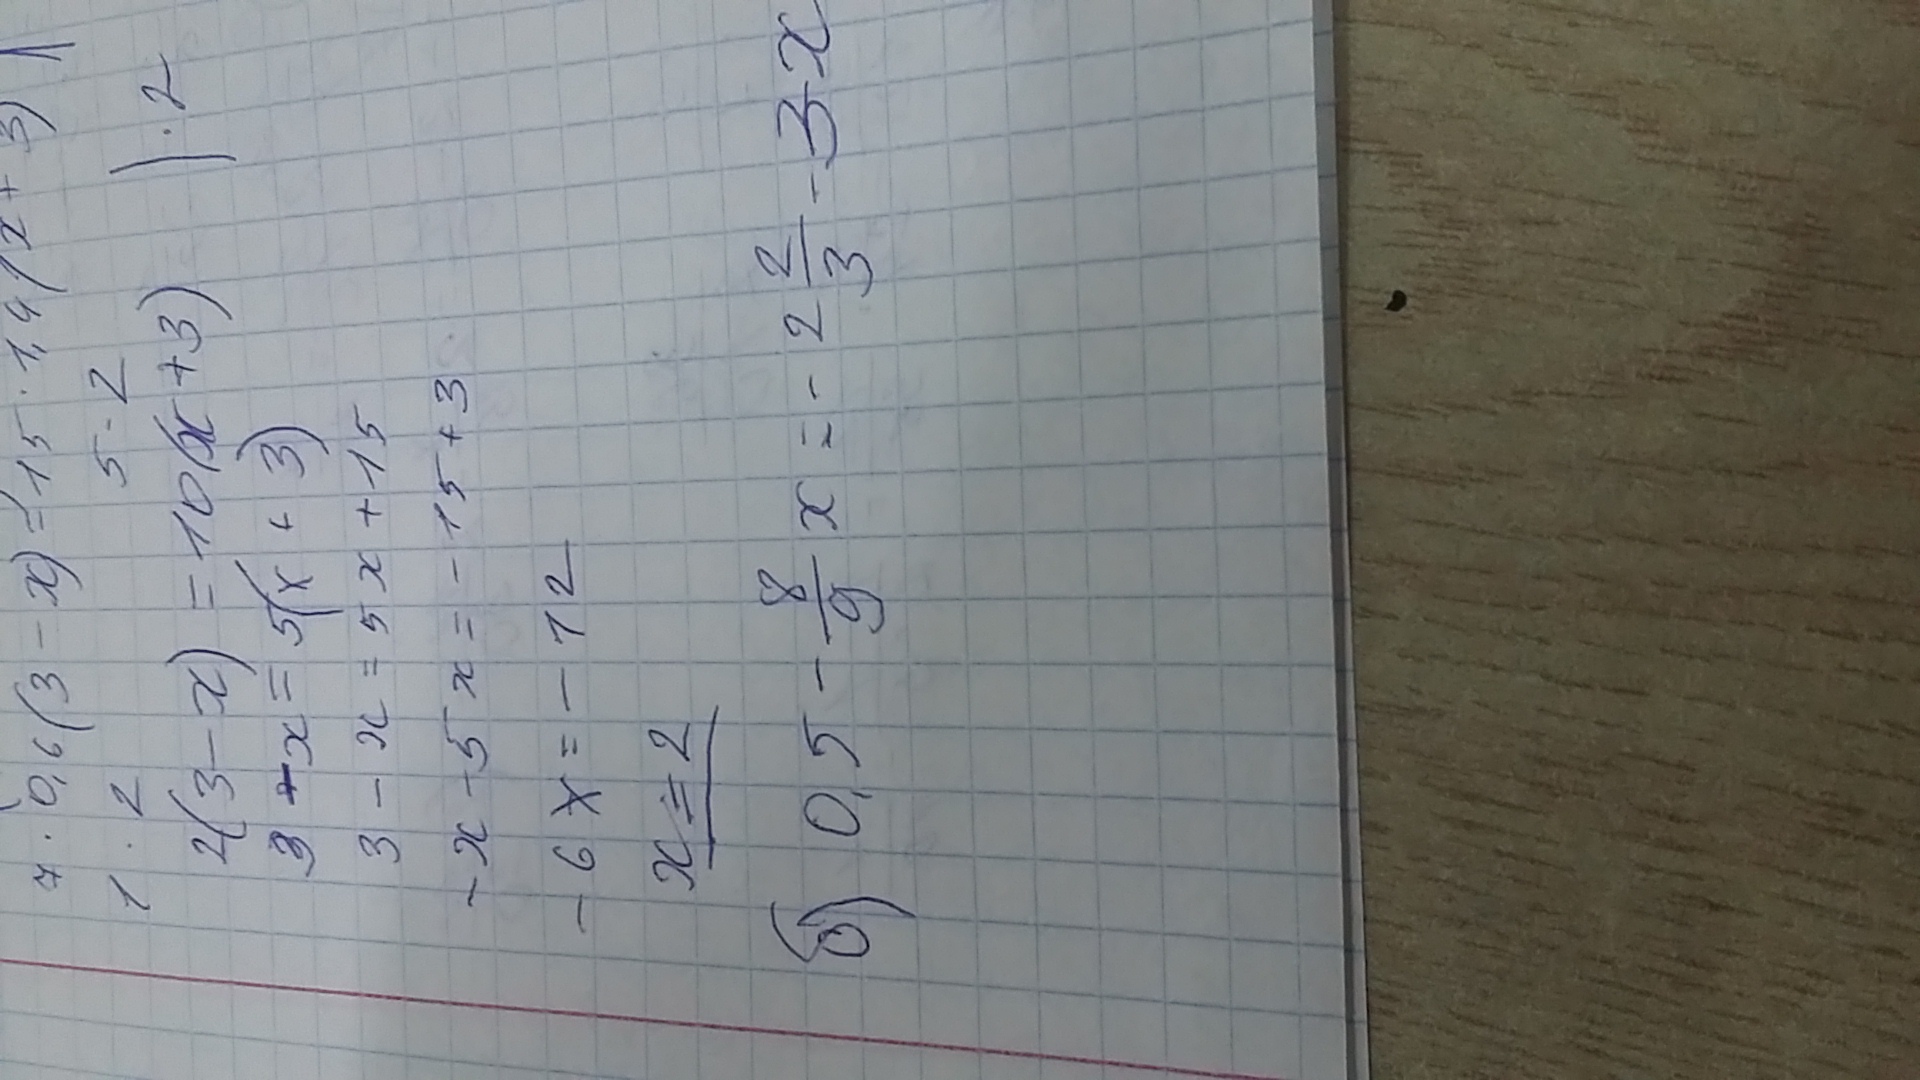 7 · 0,6(3 - x) = 15 · 1,4(x + 3) |
1 · 2 5 · 2
2(3 - x) = 10(x + 3) | · 2
3 - x = 5(x + 3)
3 - x = 5x + 15
-x - 5x = -15 + 3
-6x = -12
x = 2
б) 0,5 - 8/9 x = -2 2/3 - 3x